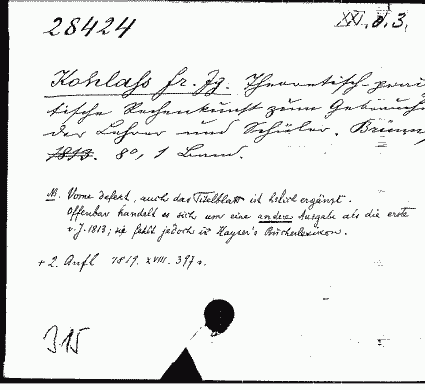 28424
XXI. d. 3.
Kohlass Fr. Jg. Theoretisch-prak
tische Rechenkunst zum Gebrauche
der Lehrer und Schüler. Brünn,
1813. 8°, 1 Band.
NB. Vorne defect, auch das Titelblatt ist hdschr. ergänzt.
Offenbar handelt es sich um eine andere Ausgabe als die erste
v. J. 1813; sie fehlt jedoch in Kayser's Bücherlexikon.
+ 2. Aufl 1819. XVIII. 397 s.
315